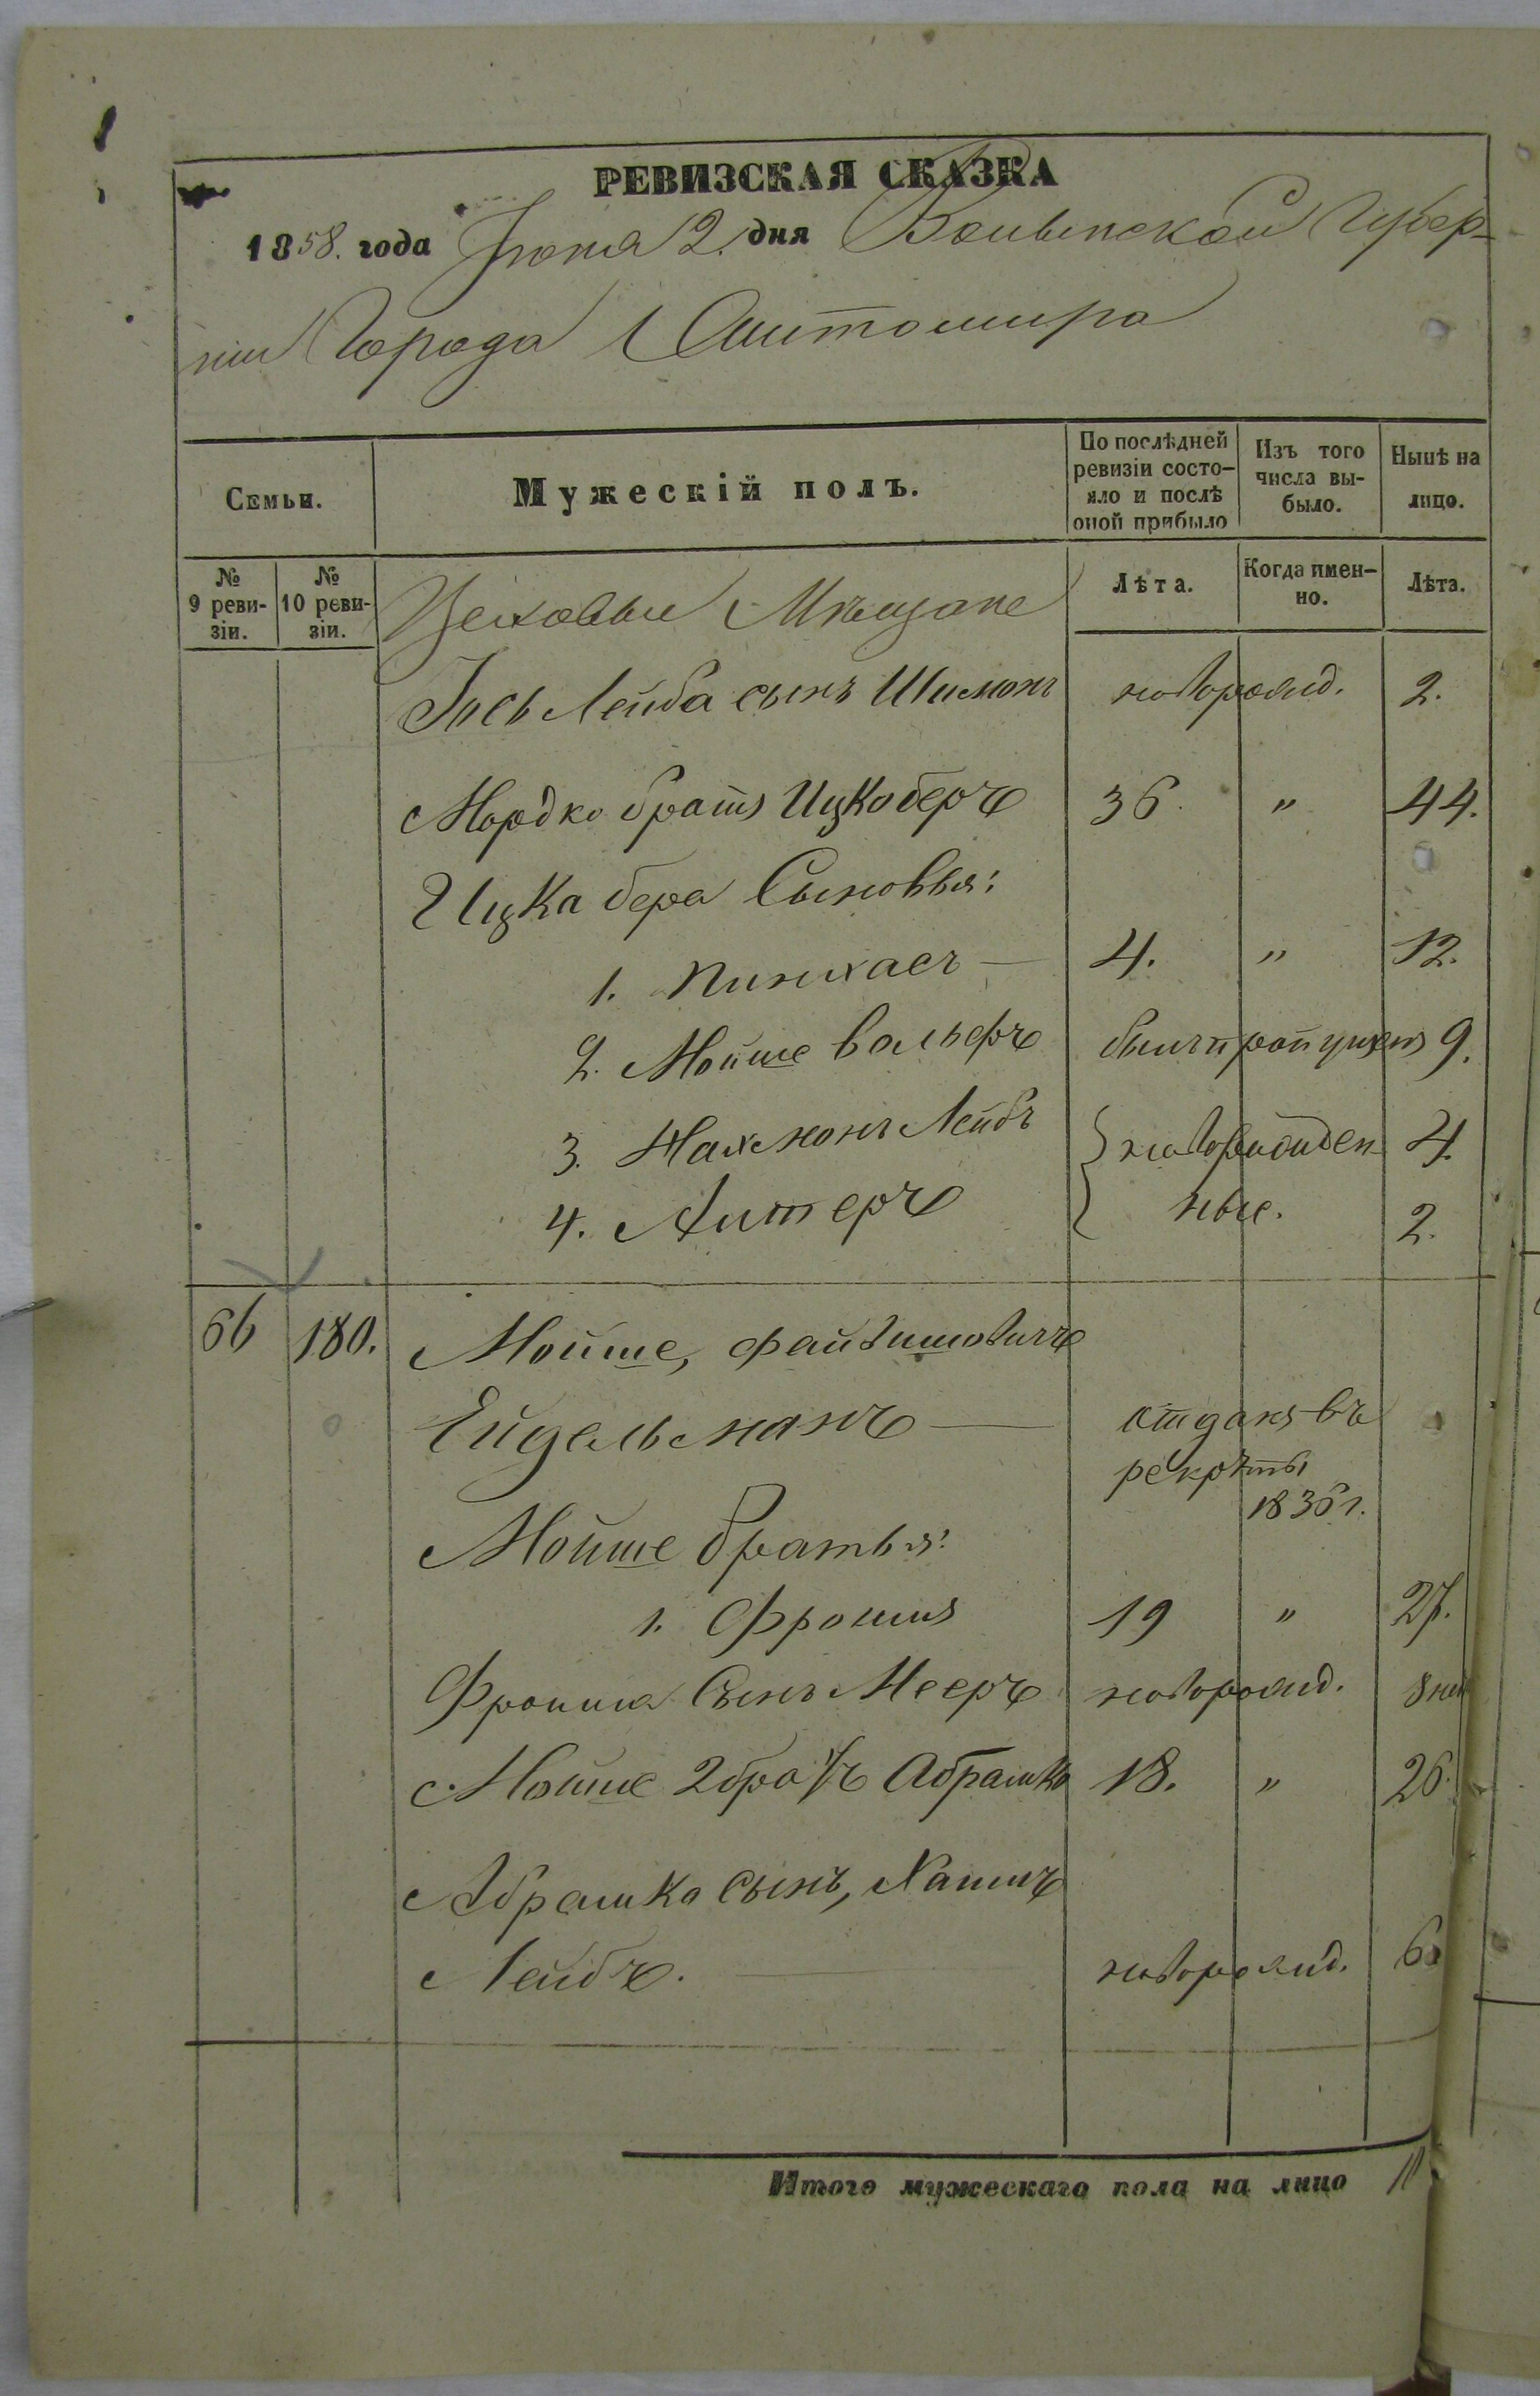 РЕВИЗСКАЯ СКАЗКА
1858. года Іюня 2. дня Волынской Губер-
ніи Города Житомира
Семьи.
Мужескій полъ.
По послѣдней ревизіи состо-яло и послѣ оной прибыло
Изъ того числа вы-было.
Нынѣ на лицо.
№ 9 реви-зіи.
№ 10 реви-зіи.
Цеховые Мѣщане
Лѣта.
Когда имен-но.
Лѣта.
Іось Лейба сынъ Шимонъ новорожд. 2.
Мордко братъ Ицко беръ 36 " 44.
Ицка бера Сыновья:
1. Пинхасъ — 4. " 12.
2. Мойше вольфъ былъ пропущенъ 9.
3. Нахмонъ Лейбъ } новорожден- 4.
4. Алтеръ } ные. 2.
66 180. Мойше, файвишовичъ
Ейдельманъ — отданъ въ
рекруты
1836 г.
Мойше братья:
1. Фроимъ 19 " 27.
Фроима Сынъ Мееръ новорожд. 8 не
Мойше 2 братъ Абрамко 18. " 26.
Абрамко сынъ, Хаимъ
Лейбъ. — новорожд. 6
Итого мужескаго пола на лицо 11